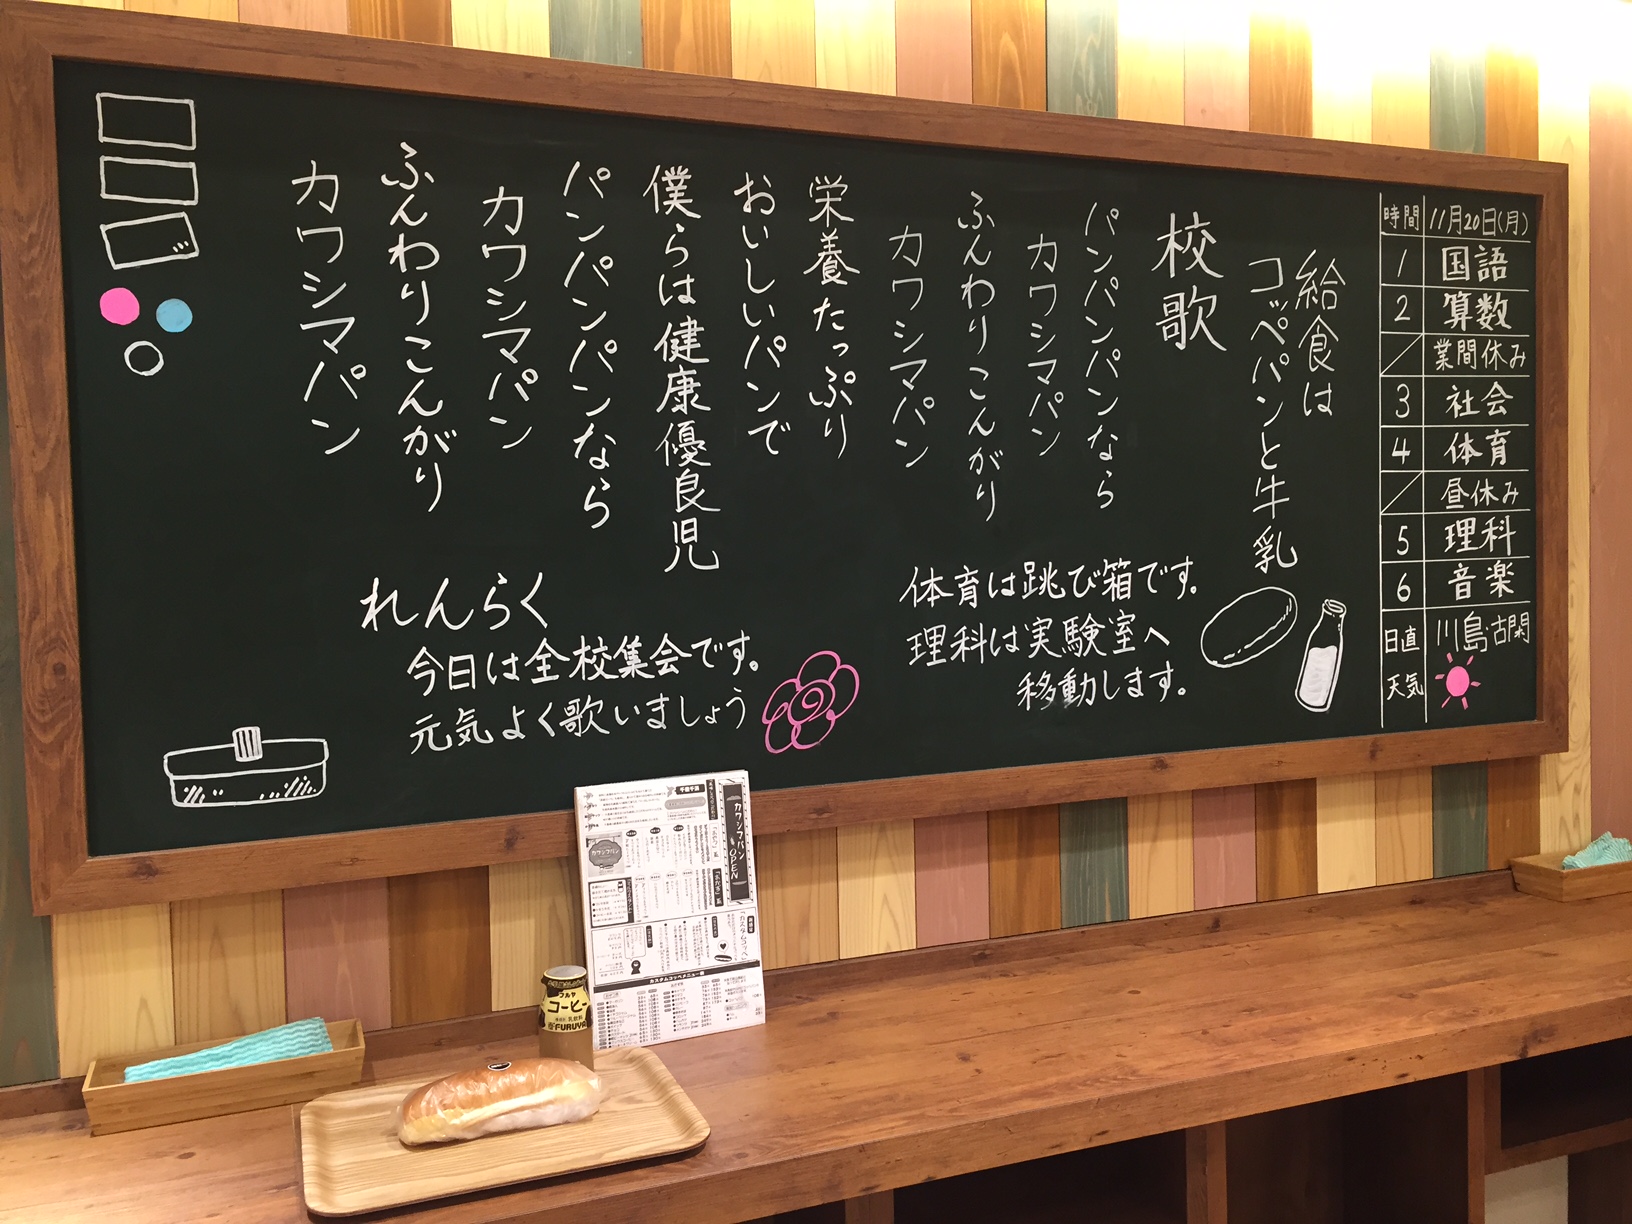 時間 11月20日(月)
1 国語
2 算数
業間休み
3 社会
4 体育
昼休み
5 理科
6 音楽
日直 川島・古閑
天気
給食は
コッペパンと牛乳
校歌
パンパンパンなら
カワシマパン
ふんわりこんがり
カワシマパン
栄養たっぷり
おいしいパンで
僕らは健康優良児
パンパンパンなら
カワシマパン
ふんわりこんがり
カワシマパン
体育は跳び箱です。
理科は実験室へ
移動します。
れんらく
今日は全校集会です。
元気よく歌いましょう
カワシマパン
OPEN
カスタムコッペ
カスタムコッペメニュー
フルヤ
コーヒー
FURUYA